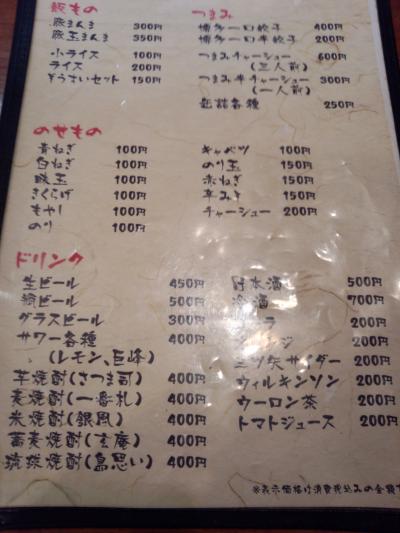 飯もの
豚まんま 300円
豚玉まんま 350円
小ライス 100円
ライス 200円
ぞうすいセット 150円
つまみ
博多一口餃子 400円
博多一口半餃子 200円
つまみチャーシュー 600円
(二人前)
つまみ半チャーシュー 300円
(一人前)
缶詰各種 250円
のせもの
青ねぎ 100円
白ねぎ 100円
味玉 100円
きくらげ 100円
もやし 100円
のり 100円
キャベツ 100円
のり玉 150円
赤ねぎ 150円
辛みそ 150円
チャーシュー 200円
ドリンク
生ビール 450円
瓶ビール 500円
グラスビール 300円
サワー各種 400円
(レモン、巨峰)
芋焼酎(さつま司) 400円
麦焼酎(一番札) 400円
米焼酎(銀風) 400円
蕎麦焼酎(玄庵) 400円
琉球焼酎(島思い) 400円
貯水酒 500円
冷酒 700円
ラ 200円
ジ 200円
三ツ矢サイダー 200円
ウィルキンソン 200円
ウーロン茶 200円
トマトジュース 200円
※表示価格は消費税込みの金額